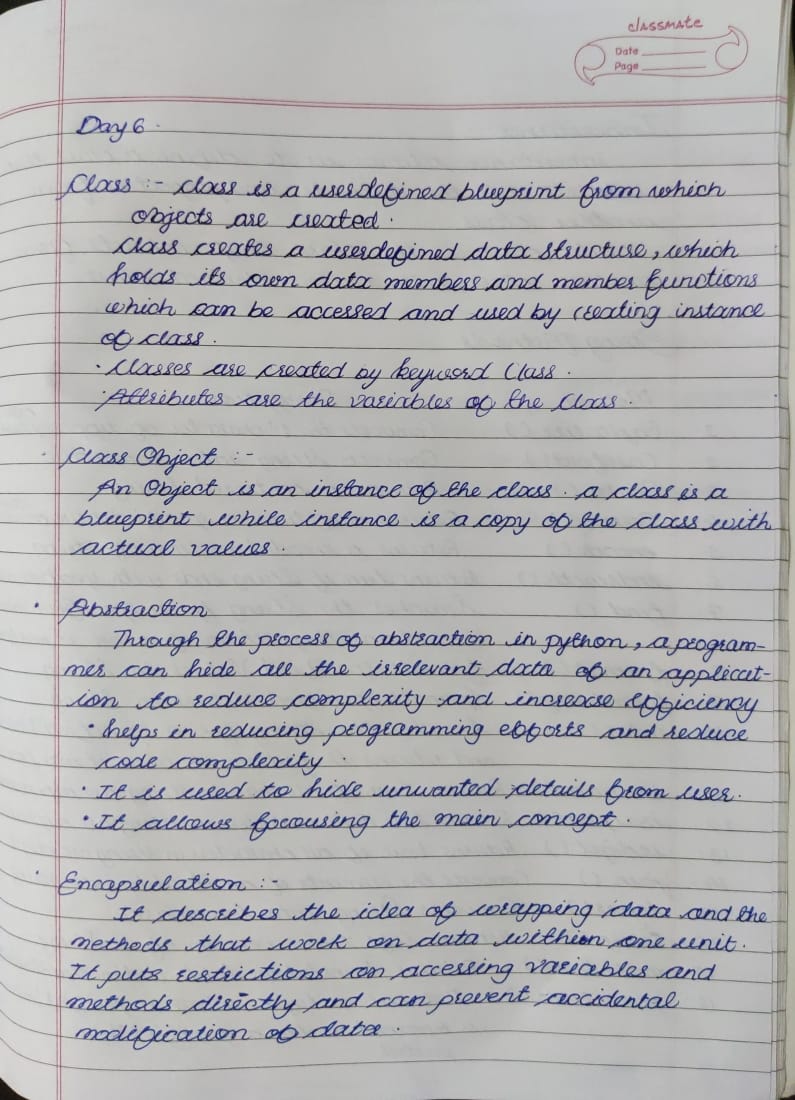 classmate
Date
Page
Day 6.
Class :- class is a userdefined blueprint from which
objects are created.
Class creates a userdefined data structure, which
holds its own data members and member functions
which can be accessed and used by creating instance
of class.
• Classes are created by keyword Class.
• Attributes are the variables of the Class.
• Class Object :-
An Object is an instance of the class. a class is a
blueprint while instance is a copy of the class with
actual values.
• Abstraction
Through the process of abstraction in python, a program-
mer can hide all the irrelevant data of an applicat-
ion to reduce complexity and increase efficiency
• helps in reducing programming efforts and reduce
code complexity.
• It is used to hide unwanted details from user.
• It allows focousing the main concept.
• Encapsulation :-
It describes the idea of wrapping data and the
methods that work on data withion one unit.
It puts restrictions on accessing variables and
methods directly and can prevent accidental
modification of data.